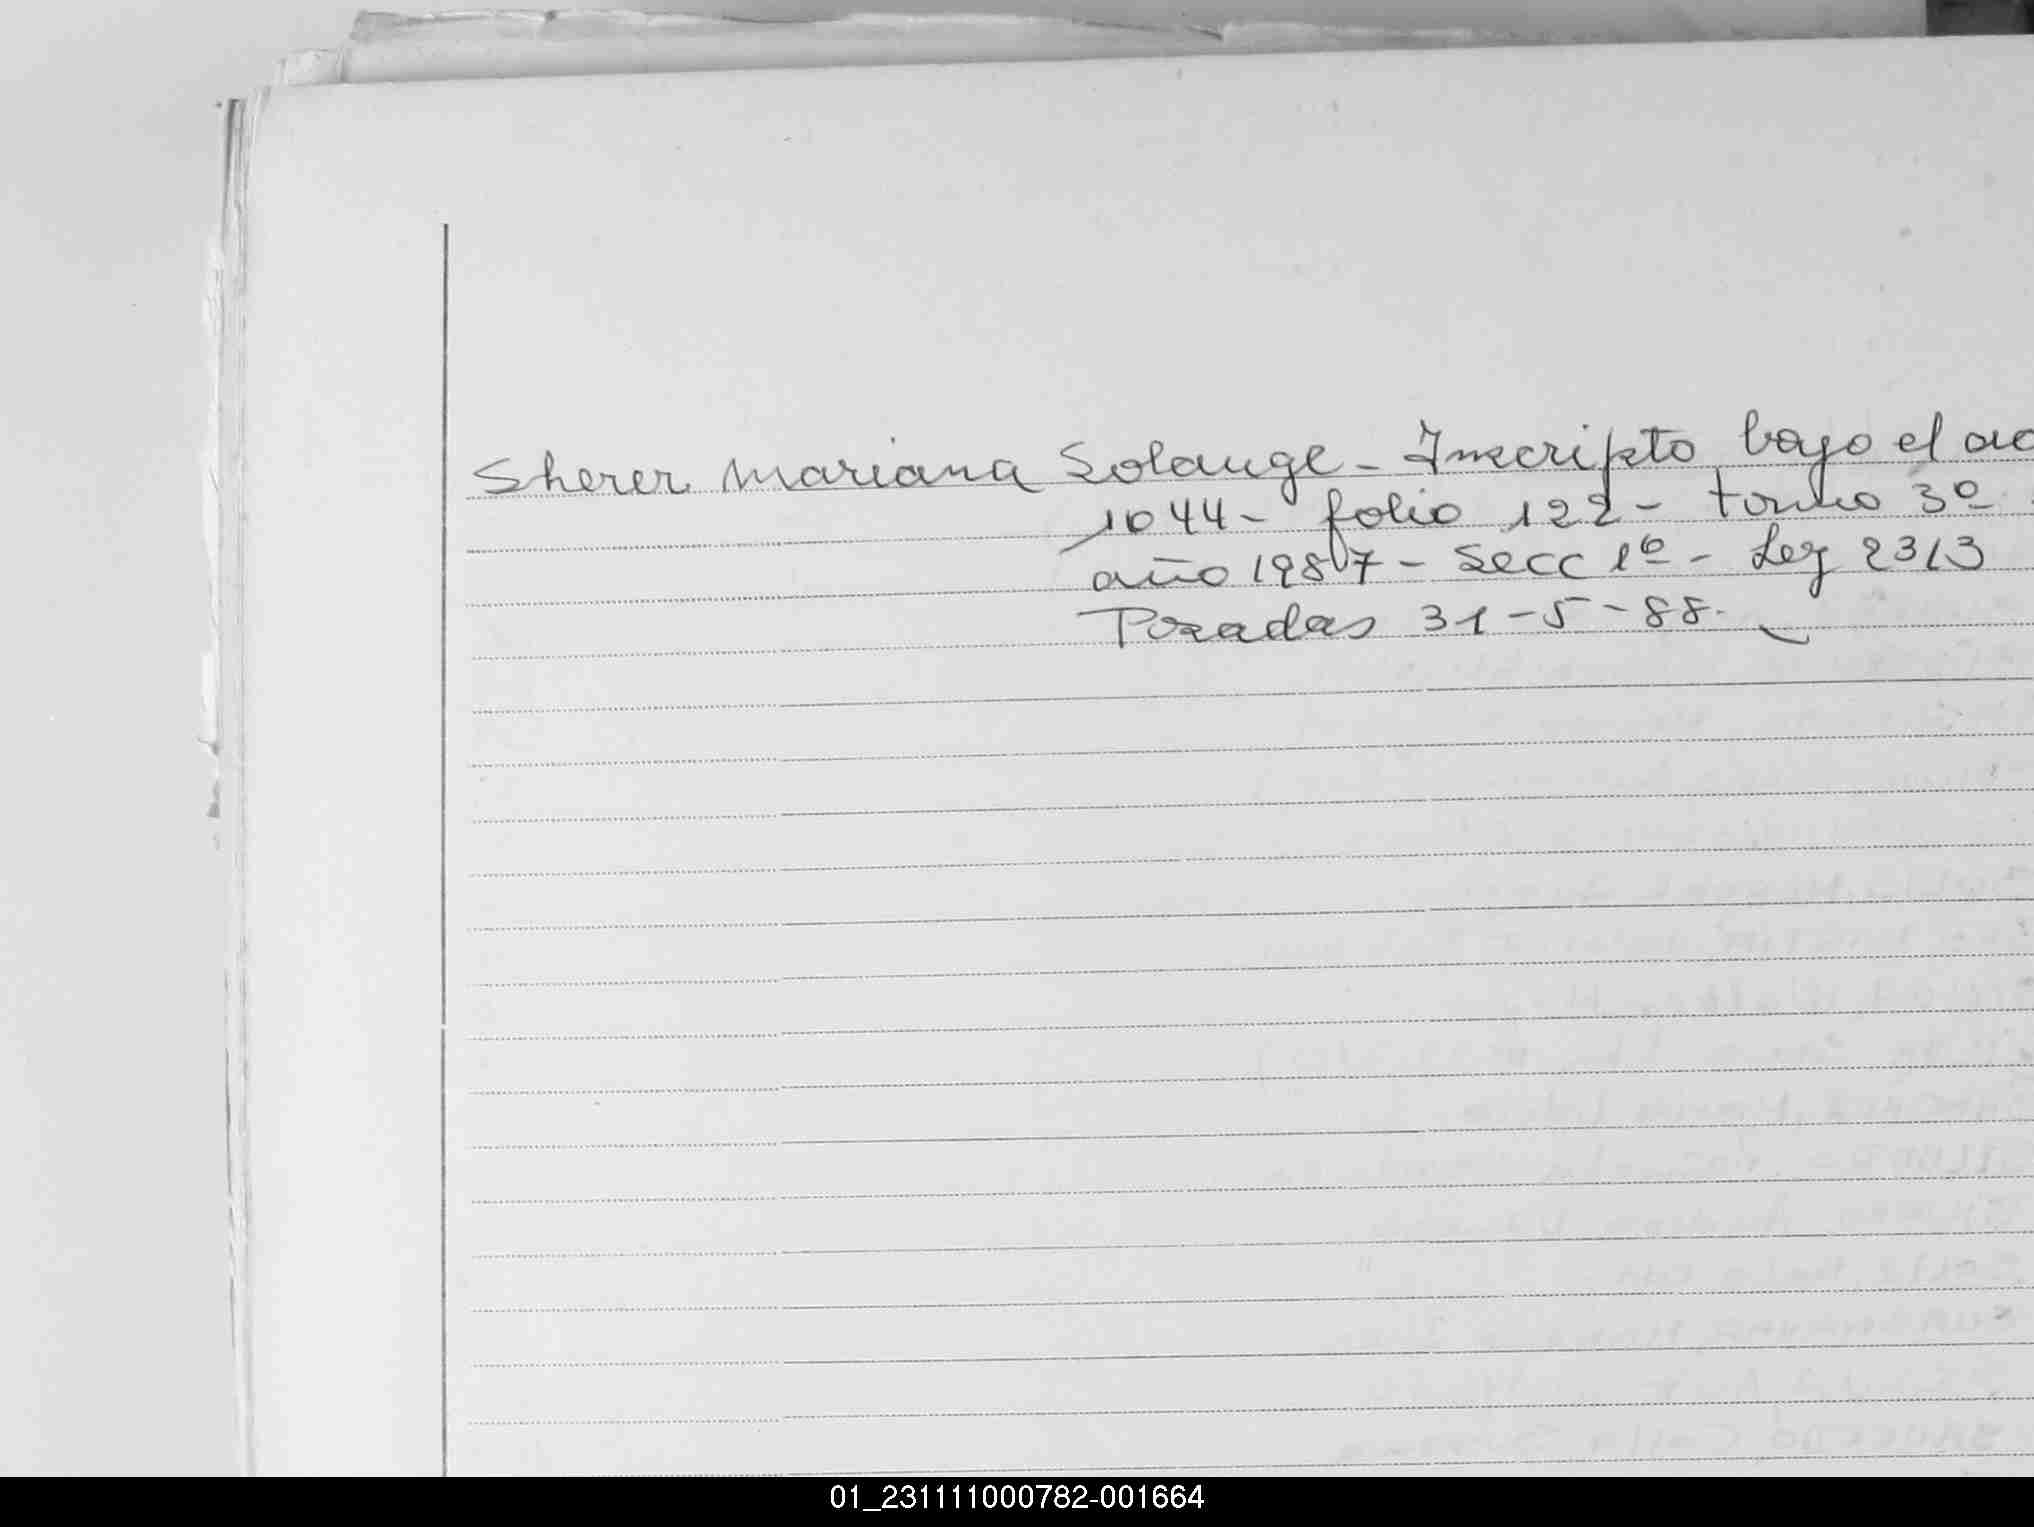 Sherer Mariana Solange - Inscripto bajo el ac
1044 - folio 122 - tomo 3º
año 1987 - Secc 1º - Ley 2313
Posadas 31-5-88.
01_231111000782-001664